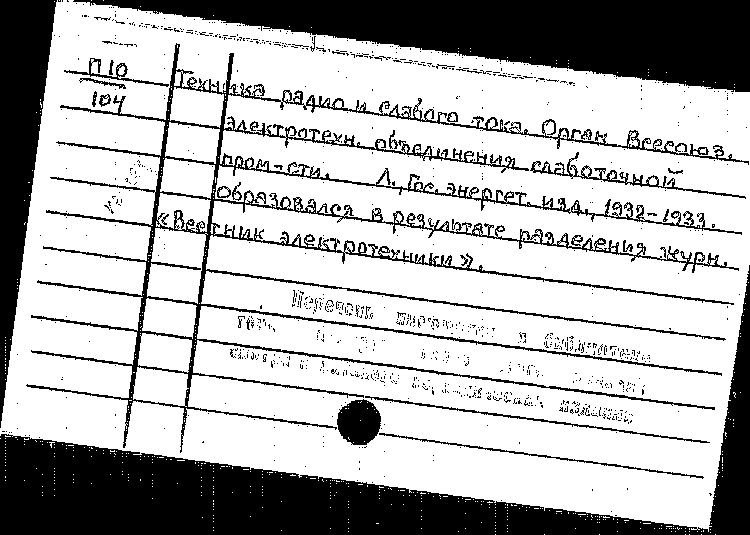 П 10
104
Техника радио и слабого тока. Орган Всесоюз.
электротехн. объединения слаботочной
пром-сти. Л., Гос. энергет. изд., 1932-1933.
образовался в результате разделения журн.
«Вестник электротехники».
Перечень имеющихся в библиотеке